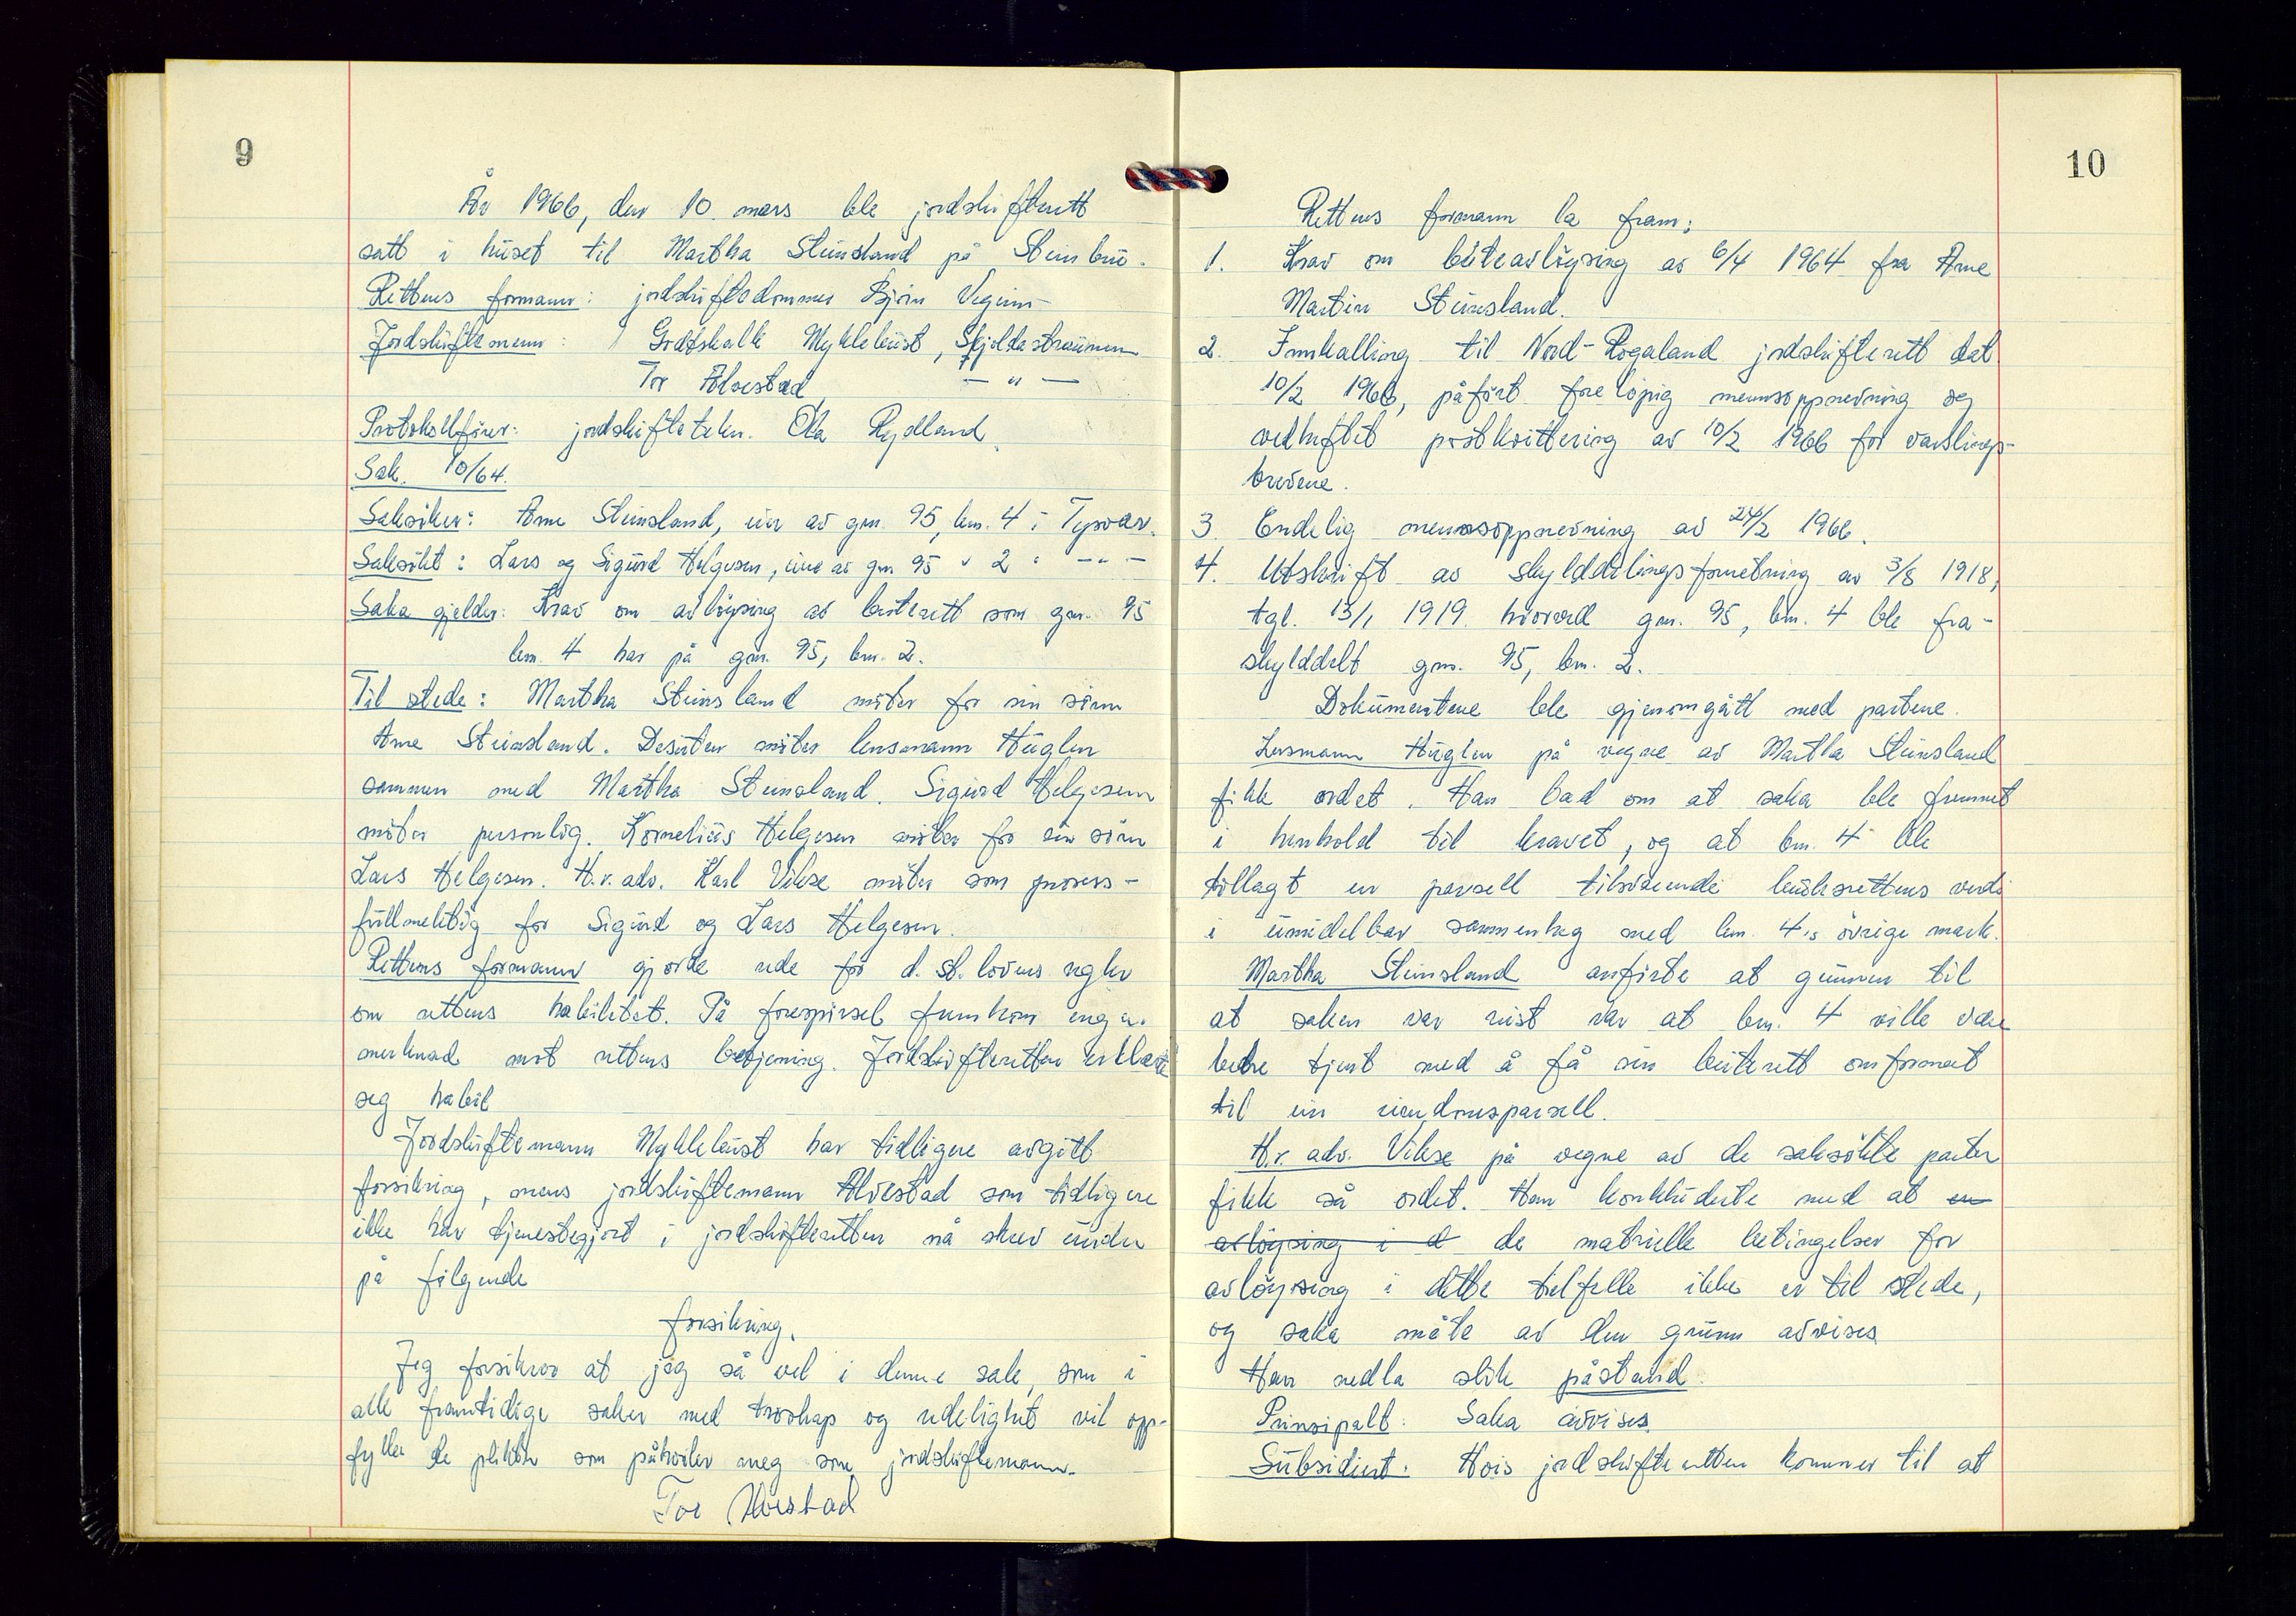 9
År 1966, den 10. mars ble jordskifterett
satt i huset til Martha Steinsland på Steinbru.
Rettens formann: jordskiftedommer Bjørn Veginn
Jordskiftemenn: Godtskalk Myklebust, Skjoldastraumen
Tor Alvestad — " —
Protokollfører: jordskiftetekn. Ola Rydland
Sak 10/64.
Saksøker: Arne Steinsland, eier av gnr. 95, bnr. 4 i Tysvær.
Saksøkt: Lars og Sigurd Helgesen, eiere av gnr. 95 " 2 " — " —
Saka gjelder: Krav om avløysing av beiterett som gnr. 95
bnr. 4 har på gnr. 95, bnr. 2.
Til stede: Martha Steinsland møter for sin sønn
Arne Steinsland. Desuten møter lensmann Huglen
sammen med Martha Steinsland. Sigurd Helgesen
møter personlig. Kornelius Helgesen møter for sin sønn
Lars Helgesen. H.r.adv. Karl Vikse møter som prosess-
fullmektig for Sigurd og Lars Helgesen.
Rettens formann gjorde rede for d. st. lovens regler
om rettens habilitet. På forespørsel fremkom ingen
merknad mot rettens betjening. Jordskifteretten erklærte
seg habil
Jordskiftemann Myklebust har tidligere avgitt
forsikring, mens jordskiftemann Alvestad som tidligere
ikke har tjenestegjort i jordskifteretten nå skrev under
på følgende
forsikring.
Jeg forsikrer at jeg så vel i denne sak, som i
alle framtidige saker med troskap og redelighet vil opp-
fylle de plikter som påhviler meg som jordskiftemann.
Tor Alvestad
10
Rettens formann la fram:
1. Krav om beiteavløysing av 6/4 1964 fra Arne
Martin Steinsland.
2. Innkalling til Nord-Rogaland jordskifterett dat
10/2 1966, påført foreløpig mennsoppnevning og
vedheftet postkvittering av 10/2 1966 for varslings-
brevene.
3. Endelig mennsoppnevning av 24/2 1966.
4. Utskrift av skylddelingsforretning av 3/8 1918,
tgl. 13/1 1919 hvorved gnr. 95, bnr. 4 ble fra-
skylddelt gnr. 95, bnr. 2.
Dokumentene ble gjenomgått med partene.
Lensmann Huglen på vegne av Martha Steinsland
fikk ordet. Han bad om at saka ble fremmet
i henhold til kravet, og at bnr. 4 ble
tillagt en parsell tilsvarende bruksrettens verdi
i umidelbar sammenheg med bnr. 4,s øvrige mark.
Martha Steinsland anførte at grunnen til
at saken var reist var at bnr. 4 ville være
bedre tjent med å få sin beiterett omformet
til ein eiendomsparsell.
H.r. adv. Vikse på vegne av de saksøkte parter
fikk så ordet. Han konkluderte med at en
avløysing i d de matrielle betingelser for
avløysing i dette tilfelle ikke er til stede,
og saka måtte av den grunn avvises
Han nedla slik påstand:
Prinsipalt: Saka avvises.
Subsidiert: Hvis jordskifteretten kommer til at